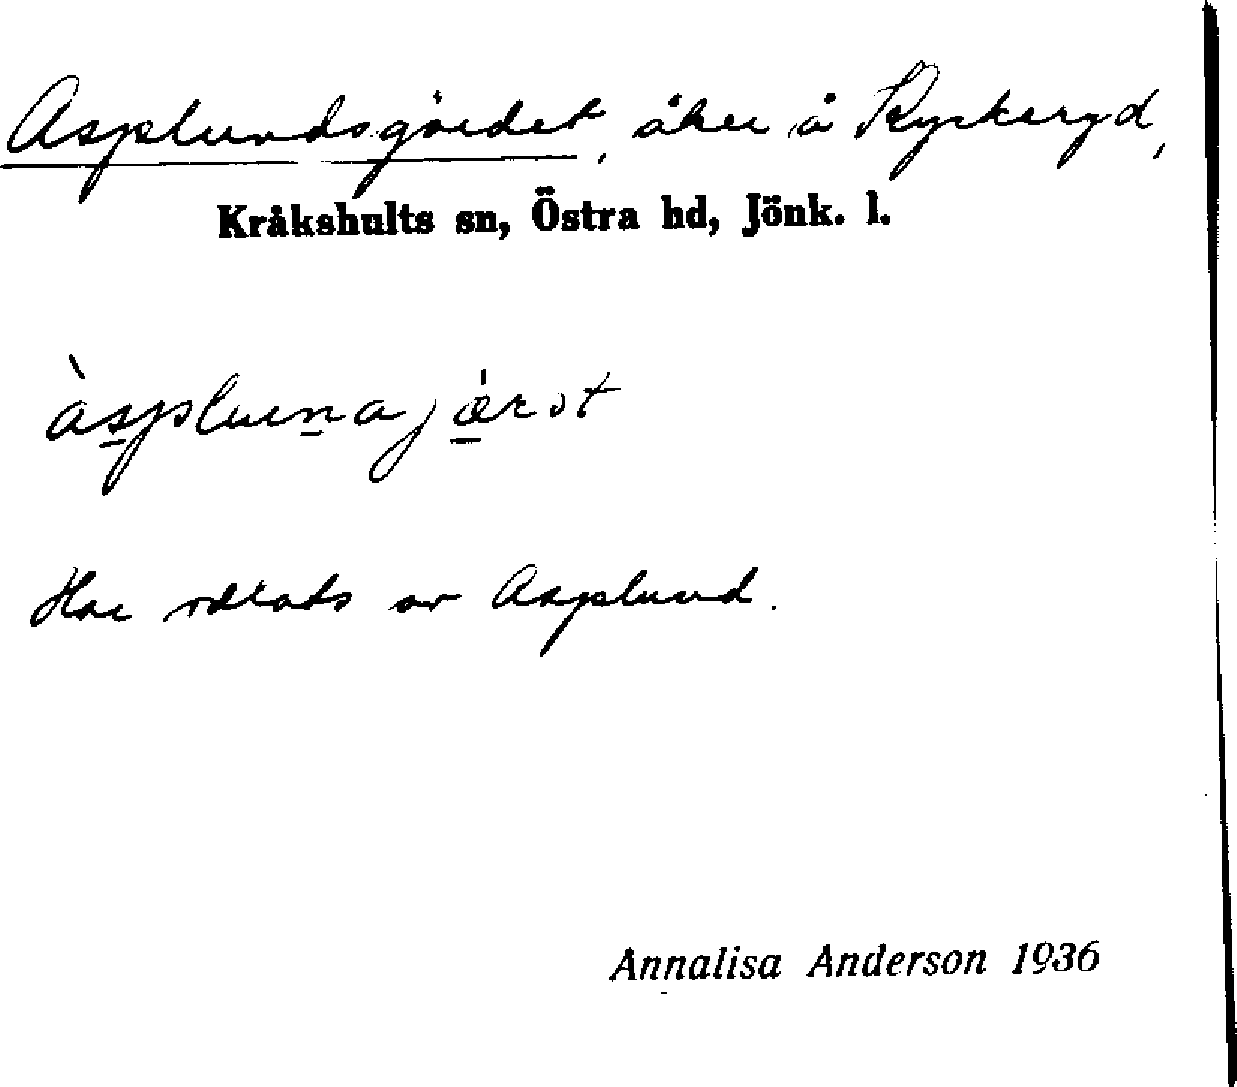 Asplundsgärdet, åker å Kyrkeryd,
Kråkshults sn, Östra hd, Jönk. l.
àsplunajæ̀rət
Har av Asplund.
Annalisa Anderson 1936